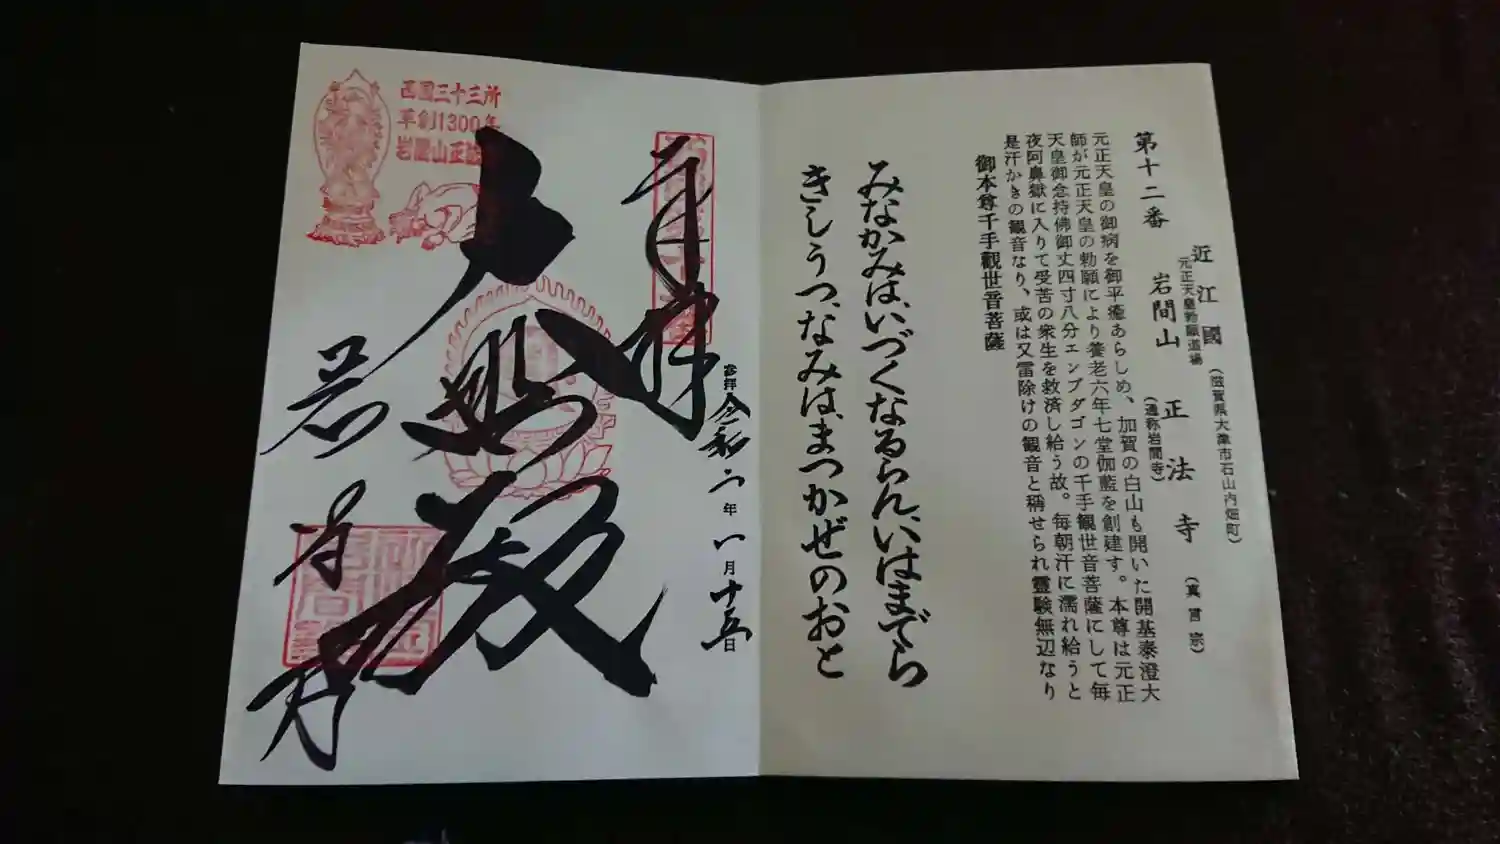 第十二番
近江國
(滋賀県大津市石山内畑町)
元正天皇勅願道場
岩間山 正法寺 (真言宗)
(通称岩間寺)
元正天皇の御病を御平癒あらしめ、加賀の白山も開いた開基泰澄大
師が元正天皇の勅願により養老六年七堂伽藍を創建す。本尊は元正
天皇御念持佛御丈四寸八分ェンブダゴンの千手観世音菩薩にして毎
夜阿鼻獄に入りて受苦の衆生を救済し給う故。毎朝汗に濡れ給うと
是汗かきの観音なり、或は又雷除けの観音と稱せられ靈験無辺なり
御本尊千手觀世音菩薩
みなかみは、いづくなるらん、いはまでら
きしうつ、なみは、まつかぜのおと
奉拝
参拝 令和 年 月 十五 日
大悲殿
岩間
西国三十三所
草創1300年
岩間山正法